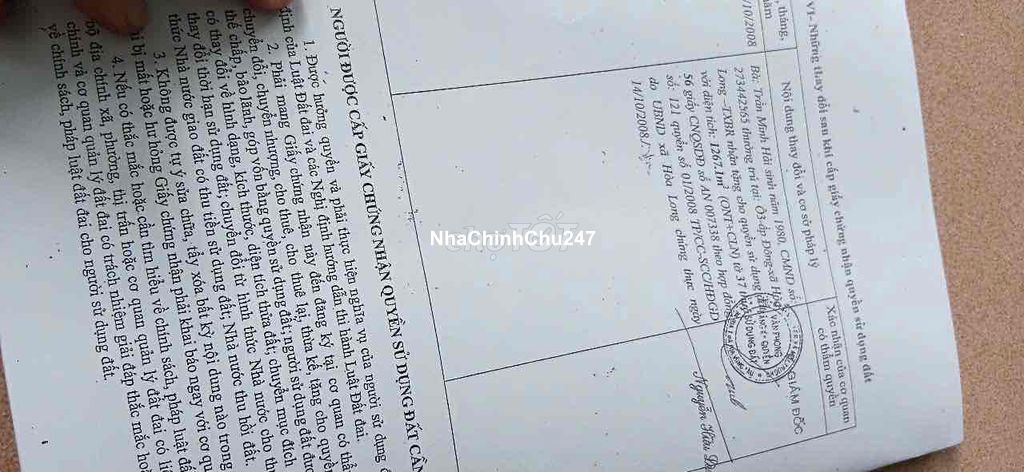 VI-Những thay đổi sau khi cấp giấy chứng nhận quyền sử dụng đất
, tháng,
Nội dung thay đổi và cơ sở pháp lý
Xác nhận của cơ quan
có thẩm quyền
/10/2008
Bà: Trần Minh Hải sinh năm 1980, CMND số:
273442565 thường trú tại: Ô3-ấp Đông-xã
Long –TXBR nhận tặng cho quyền sử dụng
với diện tích: 1267.1m² (ONT+CLN) tờ 37
56 giấy CNQSDĐ số AN 007338 theo hợp đồng
số: 121 quyển số 01/2008 TP/CC-SCC/HĐGD
do UBND xã Hòa Long chứng thực ngày
14/10/2008./.
GIÁM ĐỐC
VĂN PHÒNG
ĐĂNG KÝ QUYỀN
SỬ DỤNG ĐẤT
Nguyễn Hữu
NhaChinhChu247
NGƯỜI ĐƯỢC CẤP GIẤY CHỨNG NHẬN QUYỀN SỬ DỤNG ĐẤT CẦN
1. Được hưởng quyền và phải thực hiện nghĩa vụ của người sử dụng
định của Luật Đất đai và các Nghị định hướng dẫn thi hành Luật Đất đai.
2. Phải mang Giấy chứng nhận này đến đăng ký tại cơ quan có thẩ
chuyển đổi, chuyển nhượng, cho thuê, cho thuê lại, thừa kế, tặng cho quyề
thế chấp, bảo lãnh, góp vốn bằng quyền sử dụng đất; người sử dụng đất đượ
có thay đổi về hình dạng, kích thước, diện tích thửa đất; chuyển mục đích
thay đổi thời hạn sử dụng đất; chuyển đổi từ hình thức Nhà nước cho th
thức Nhà nước giao đất có thu tiền sử dụng đất; Nhà nước thu hồi đất.
3. Không được tự ý sửa chữa, tẩy xóa bất kỳ nội dung nào trong
bị mất hoặc hư hỏng Giấy chứng nhận phải khai báo ngay với cơ qu
4. Nếu có thắc mắc hoặc cần tìm hiểu về chính sách, pháp luật đấ
bộ địa chính xã, phường, thị trấn hoặc cơ quan quản lý đất đai có li
chính và cơ quan quản lý đất đai có trách nhiệm giải đáp thắc mắc hoặ
về chính sách, pháp luật đất đai cho người sử dụng đất.